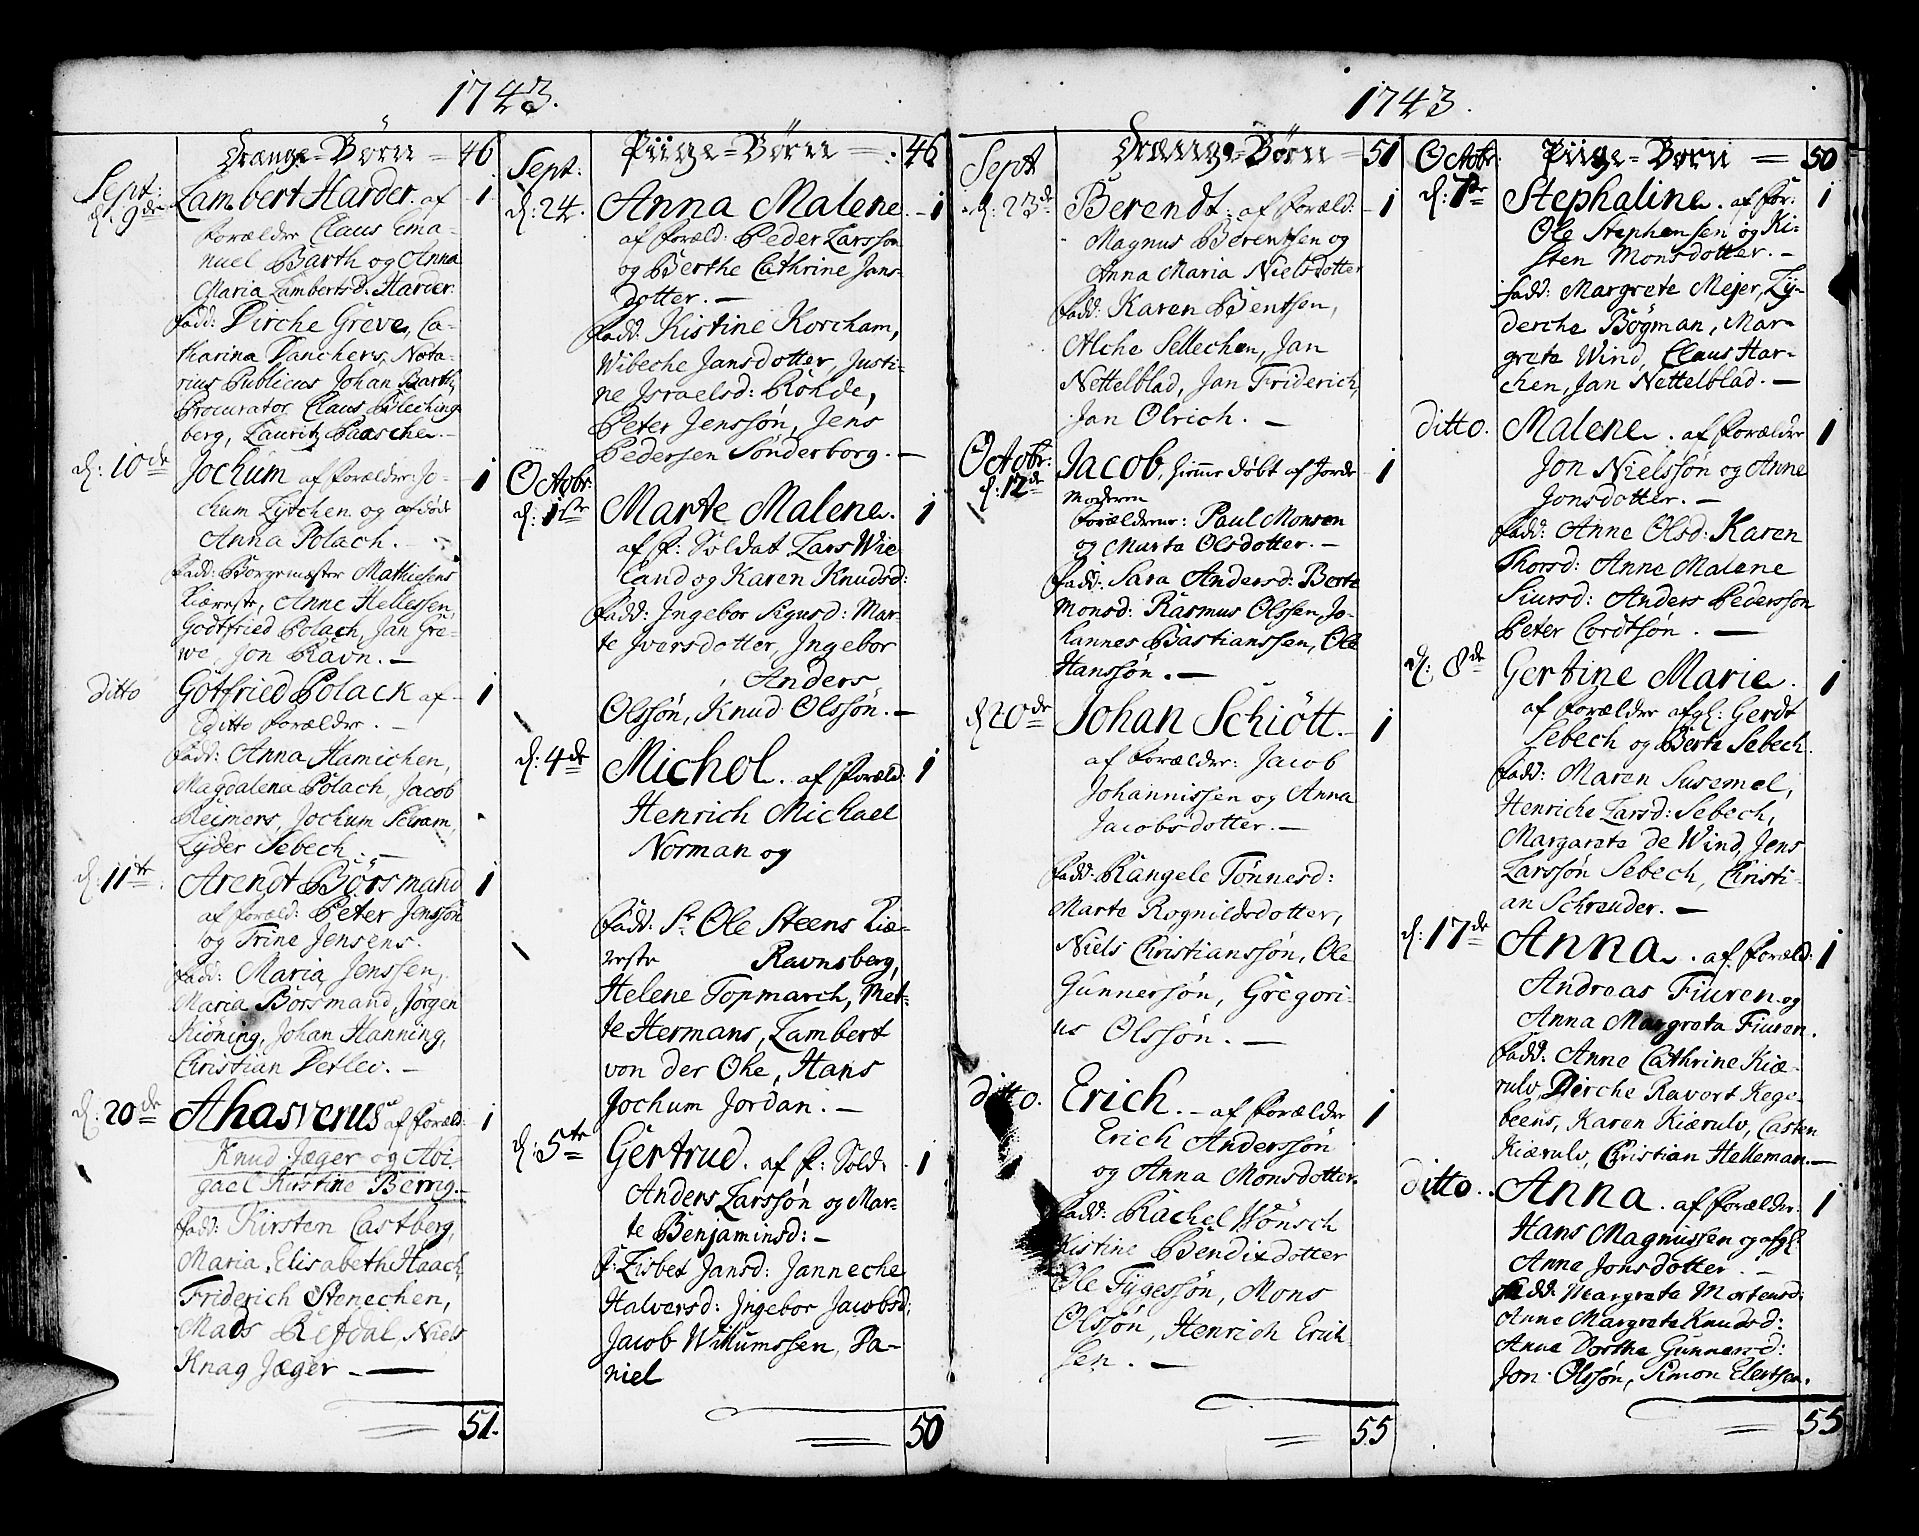 1743.
Drænge-Børn = 46
Sept:
d. 9de Lambert Harder. af 1
forældre Claus Ema-
nuel Barth og Anna
Maria Lambertsd: Harder.
fadd: Dirche Greve, Ca-
tharina Danchers, Nota-
rius Publicus Johan Barth,
Procurator Claus Bleching-
berg, Lauritz Paasche. —
d: 10de Jochum af forældre: Jo- 1
chum Lytchen og
Anna Polach. —
fadd: Borgemæster Mathiesens
Kiæreste, Anne Hellessen,
Godtfried Polach, Jan Gre-
we, Jon Ravn. —
ditto Gotfried Polack af 1
ditto forældre. —
fadd: Anna Hamichen,
Magdalena Polach, Jacob
Reimers, Jochum Schram,
Lyder Sebech. —
d: 11te Arendt Børsmand 1
af foræld: Peter Jenssøn
og Trine Jensens.
fadd: Maria Jenssen,
Maria Børsmand, Jørgen
Kiøning, Johan Hanning,
Christian Detlev. —
d: 20de Ahasverus af foræld: 1
Knud Jæger og Abi-
gael Kirstine Berrig. —
fadd: Kirsten Castberg,
Maria Elisabeth Haach,
Friderich Stenechen,
Mads Refdal, Niels
Knag Jæger —
51.
Piige-Børn = 46
Sept:
d: 24. Anna Malene 1
af foræld: Peder Larssøn
og Berthe Cathrine Jans-
dotter. —
fadd: Kistine Korcham,
Wibeche Jansdotter, Justi-
ne Israelsd: Rohde,
Peter Jenssøn, Jens
Pedersen Sønderborg. —
Octobr:
d: 1ste Marte Malene. 1
af f: Soldat Lars Wie-
land og Karen Knudsd:
fadd: Ingebor Sigusd: Mar-
te Iversdotter, Ingebor
Anders
Olssøn, Knud Olssøn. —
d: 4de Michol. af foræld: 1
Henrich Michael
Norman og
fadd: Sr. Ole Steens Kiæ-
reste Ravnsberg,
Helene Topmarch, Met-
te Hermans, Lambert
von der Ohe, Hans
Jochum Jordan. —
d: 5te Gertrud. af f: Sold: 1
Anders Larssøn og Mar-
te Benjaminsd: —
f: Lisbet Jansd: Janneche
Halversd: Ingebor Jacobsd:
Jacob Willumssen, Da-
niel
50
1743.
Drænge-Børn = 51
Sept
d: 23de Berendt. af foræld: 1
Magnus Berentsen og
Anna Maria Nielsdotter
fadd: Karen Bentsen,
Alche Sellechen, Jan
Nettelblad, Jan Friderich,
Jan Olrich. —
Octobr:
d: 12de Jacob, hiemme døbt af Jorde 1
moderen
forælderne: Paul Monsen
og Marta Olsdotter. —
fadd: Sara Andersd: Berte
Monsd: Rasmus Olssen, Jo-
hannes Bastianssen, Ole
Hanssøn. —
d 20de Johan Schiøtt. 1
af forældre: Jacob
Johannissen og Anna
Jacobsdotter. —
fadd: Rangele Tønnesd:
Marte Rognildsdotter,
Niels Christianssøn, Ole
Gunnersøn, Gregori-
us Olssøn. —
ditto. Erich. — af forældre 1
Erich Anderssøn
og Anna Monsdotter.
fadd: Rachel Wønsch
Kistine Bendixdotter
Ole Tygessøn, Mons
Olssøn, Henrich Erich-
sen. —
55
Piige-Børn = 50
Octobr:
d: 7de Stephaline. af for: 1
Ole Stephensen og Ki-
sten Monsdotter. —
fadd: Margrete Mejer, Ly-
derche Bøgman, Mar-
greta Wind, Claus Har-
chen, Jan Nettelblad. —
ditto. Malene. af forældre 1
Jon Nielssøn og Anne
Jonsdotter. —
fadd: Anne Olsd: Karen
Thorsd: Anne Malene
Siursd: Anders Pederssøn
Peter Cordtsøn. —
d: 8de Gertine Marie. 1
af forældre afgl: Gerdt
Sebech og Berte Sebech.
fadd: Maren Susemel,
Henriche Larsd: Sebech,
Margareta de Wind, Jens
Larssøn Sebech, Christi-
an Schreuder. —
d: 17de Anna. af foræld: 1
Andreas Fiuren og
Anna Margreta Fiuren.
fadd: Anne Cathrine Kiæ-
rulv, Dirche Ravert Kege-
beens, Karen Kiærulv, Casten
Kiærulv, Christian Helleman. —
ditto. Anna. af forældre: 1
Hans Magnussen og afgl:
Anne Jonsdotter. —
fadd: Margreta Mortensd:
Anne Margreta Knudsd:
Anne Dorthe Gunnersd:
Jon Olssøn, Simon Elertsen.
55